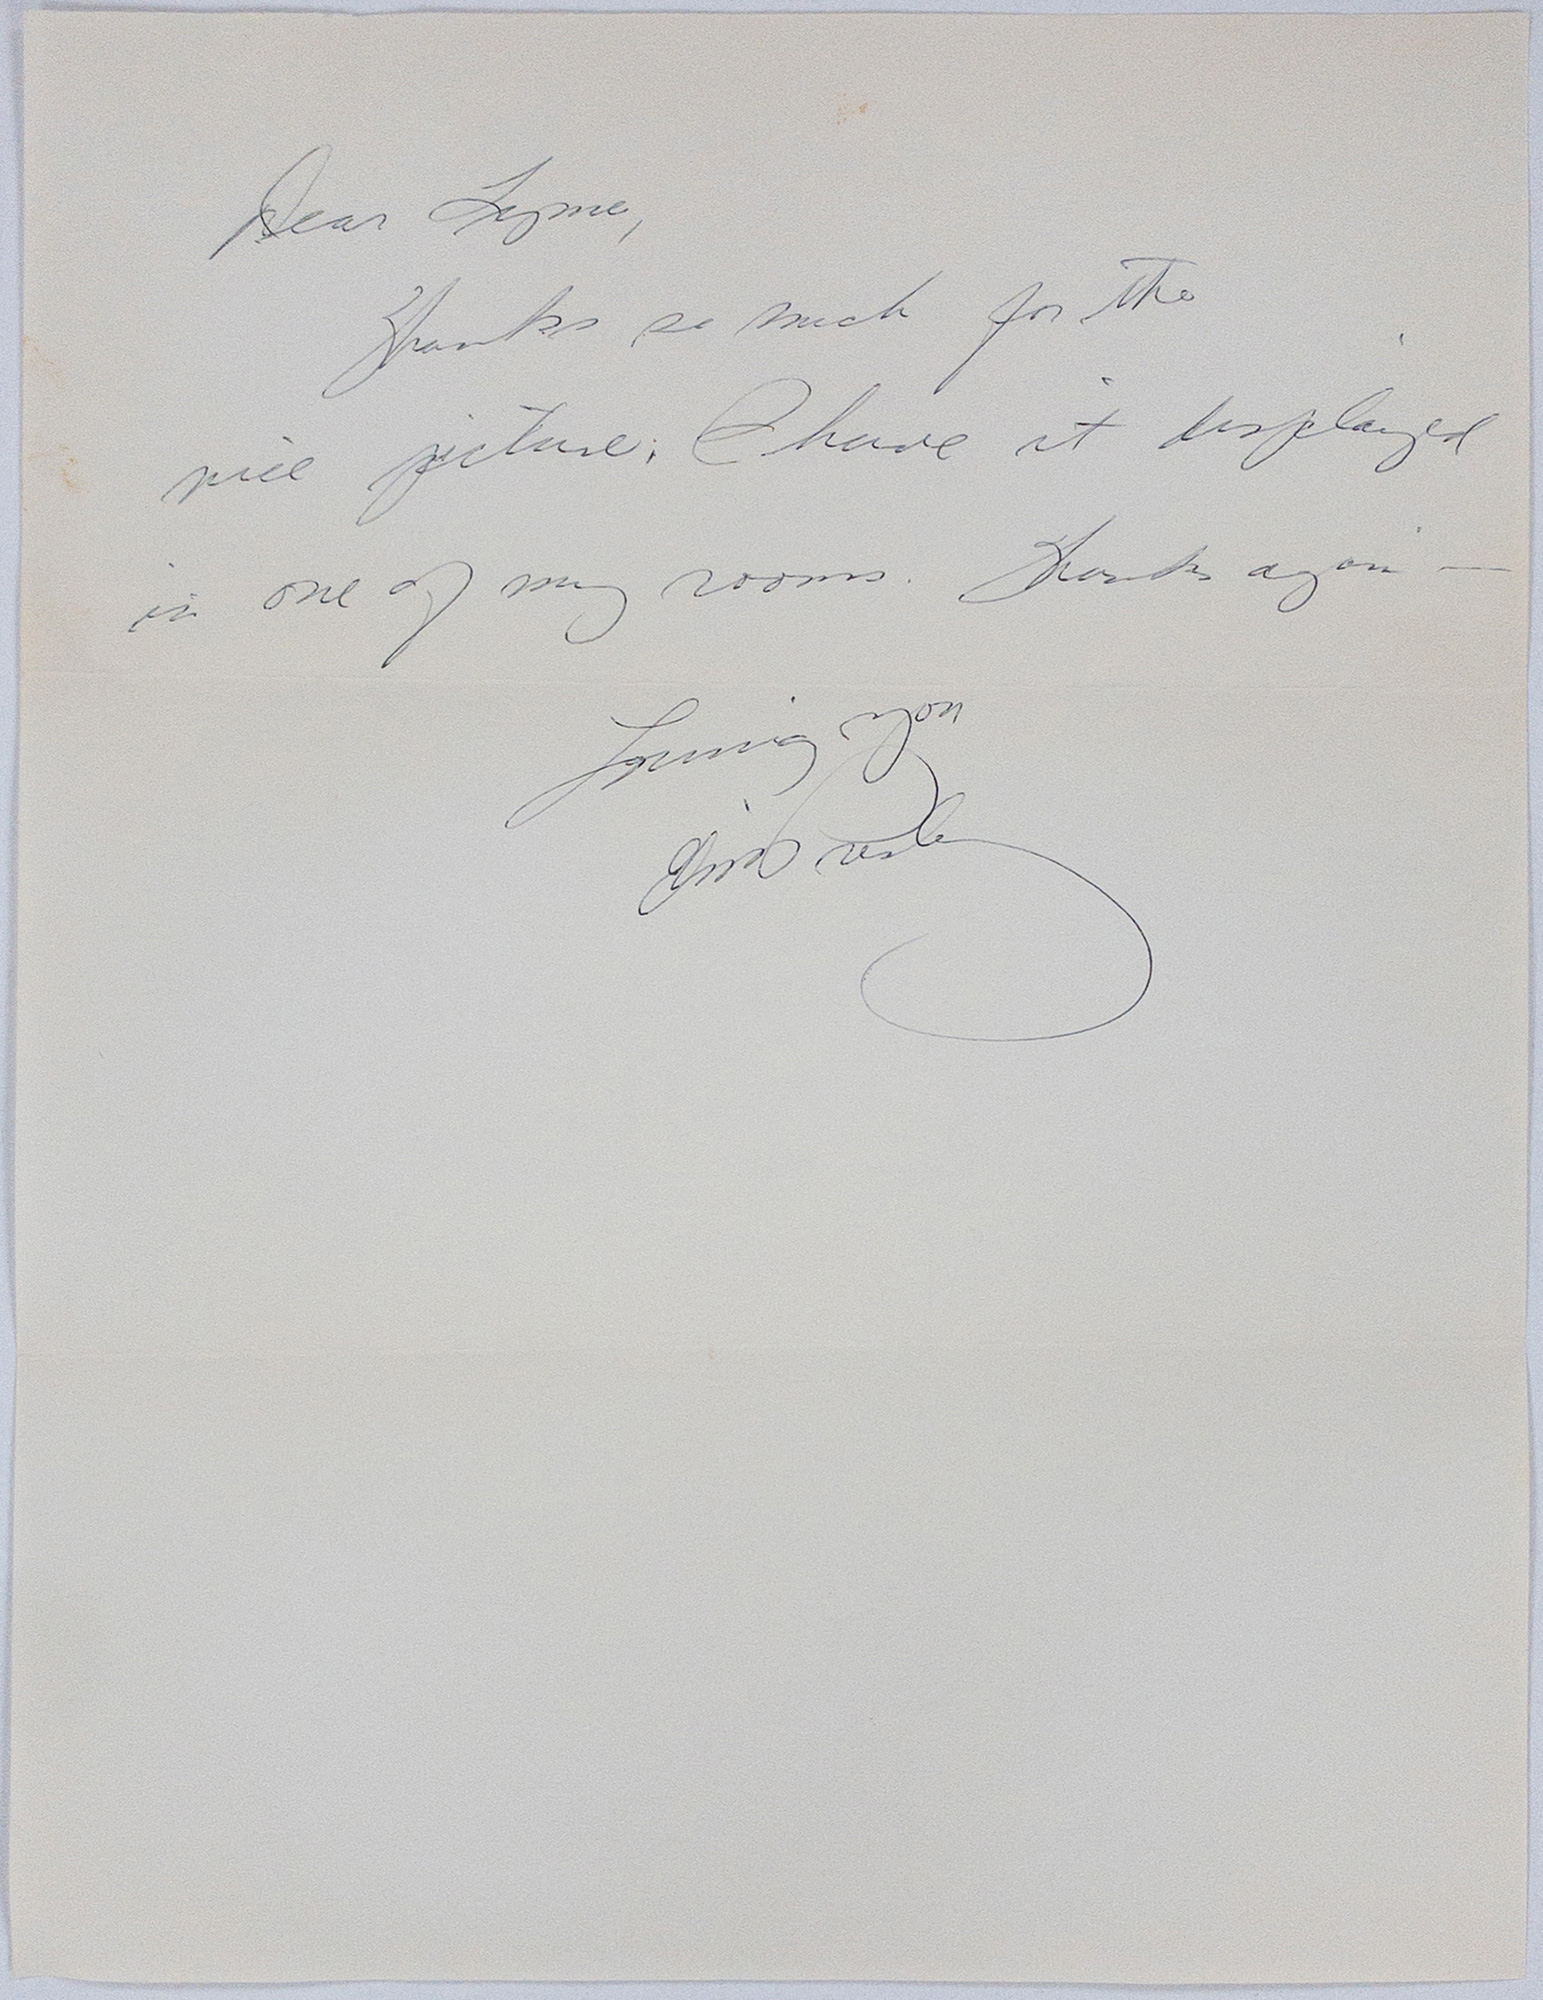 Dear Lynne,
Thanks so much for the
nice picture. I have it displayed
in one of my rooms. Thanks again —
Loving You
Elvis Presley